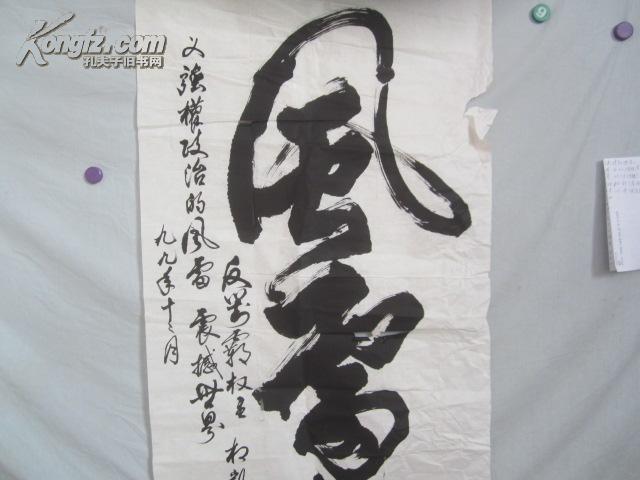 Kongfz.com
孔夫子旧书网
風雷
反对霸权主
义強權政治的風雷 震撼世界
九九年十二月